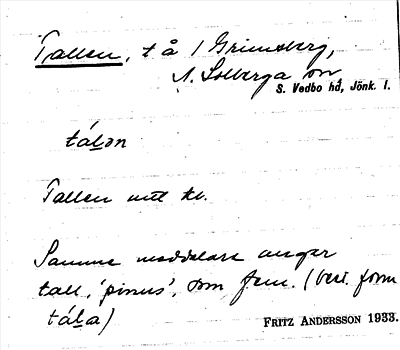 Tallen, t å 1 Grimsberg,
N. Solberga sn,
S. Vedbo hd, Jönk. l.
tálǝn
Tallen utt kl.
Samme meddelare anger
tall, 'pinus', som fem. (best. form
tála)
FRITZ ANDERSSON 1933.